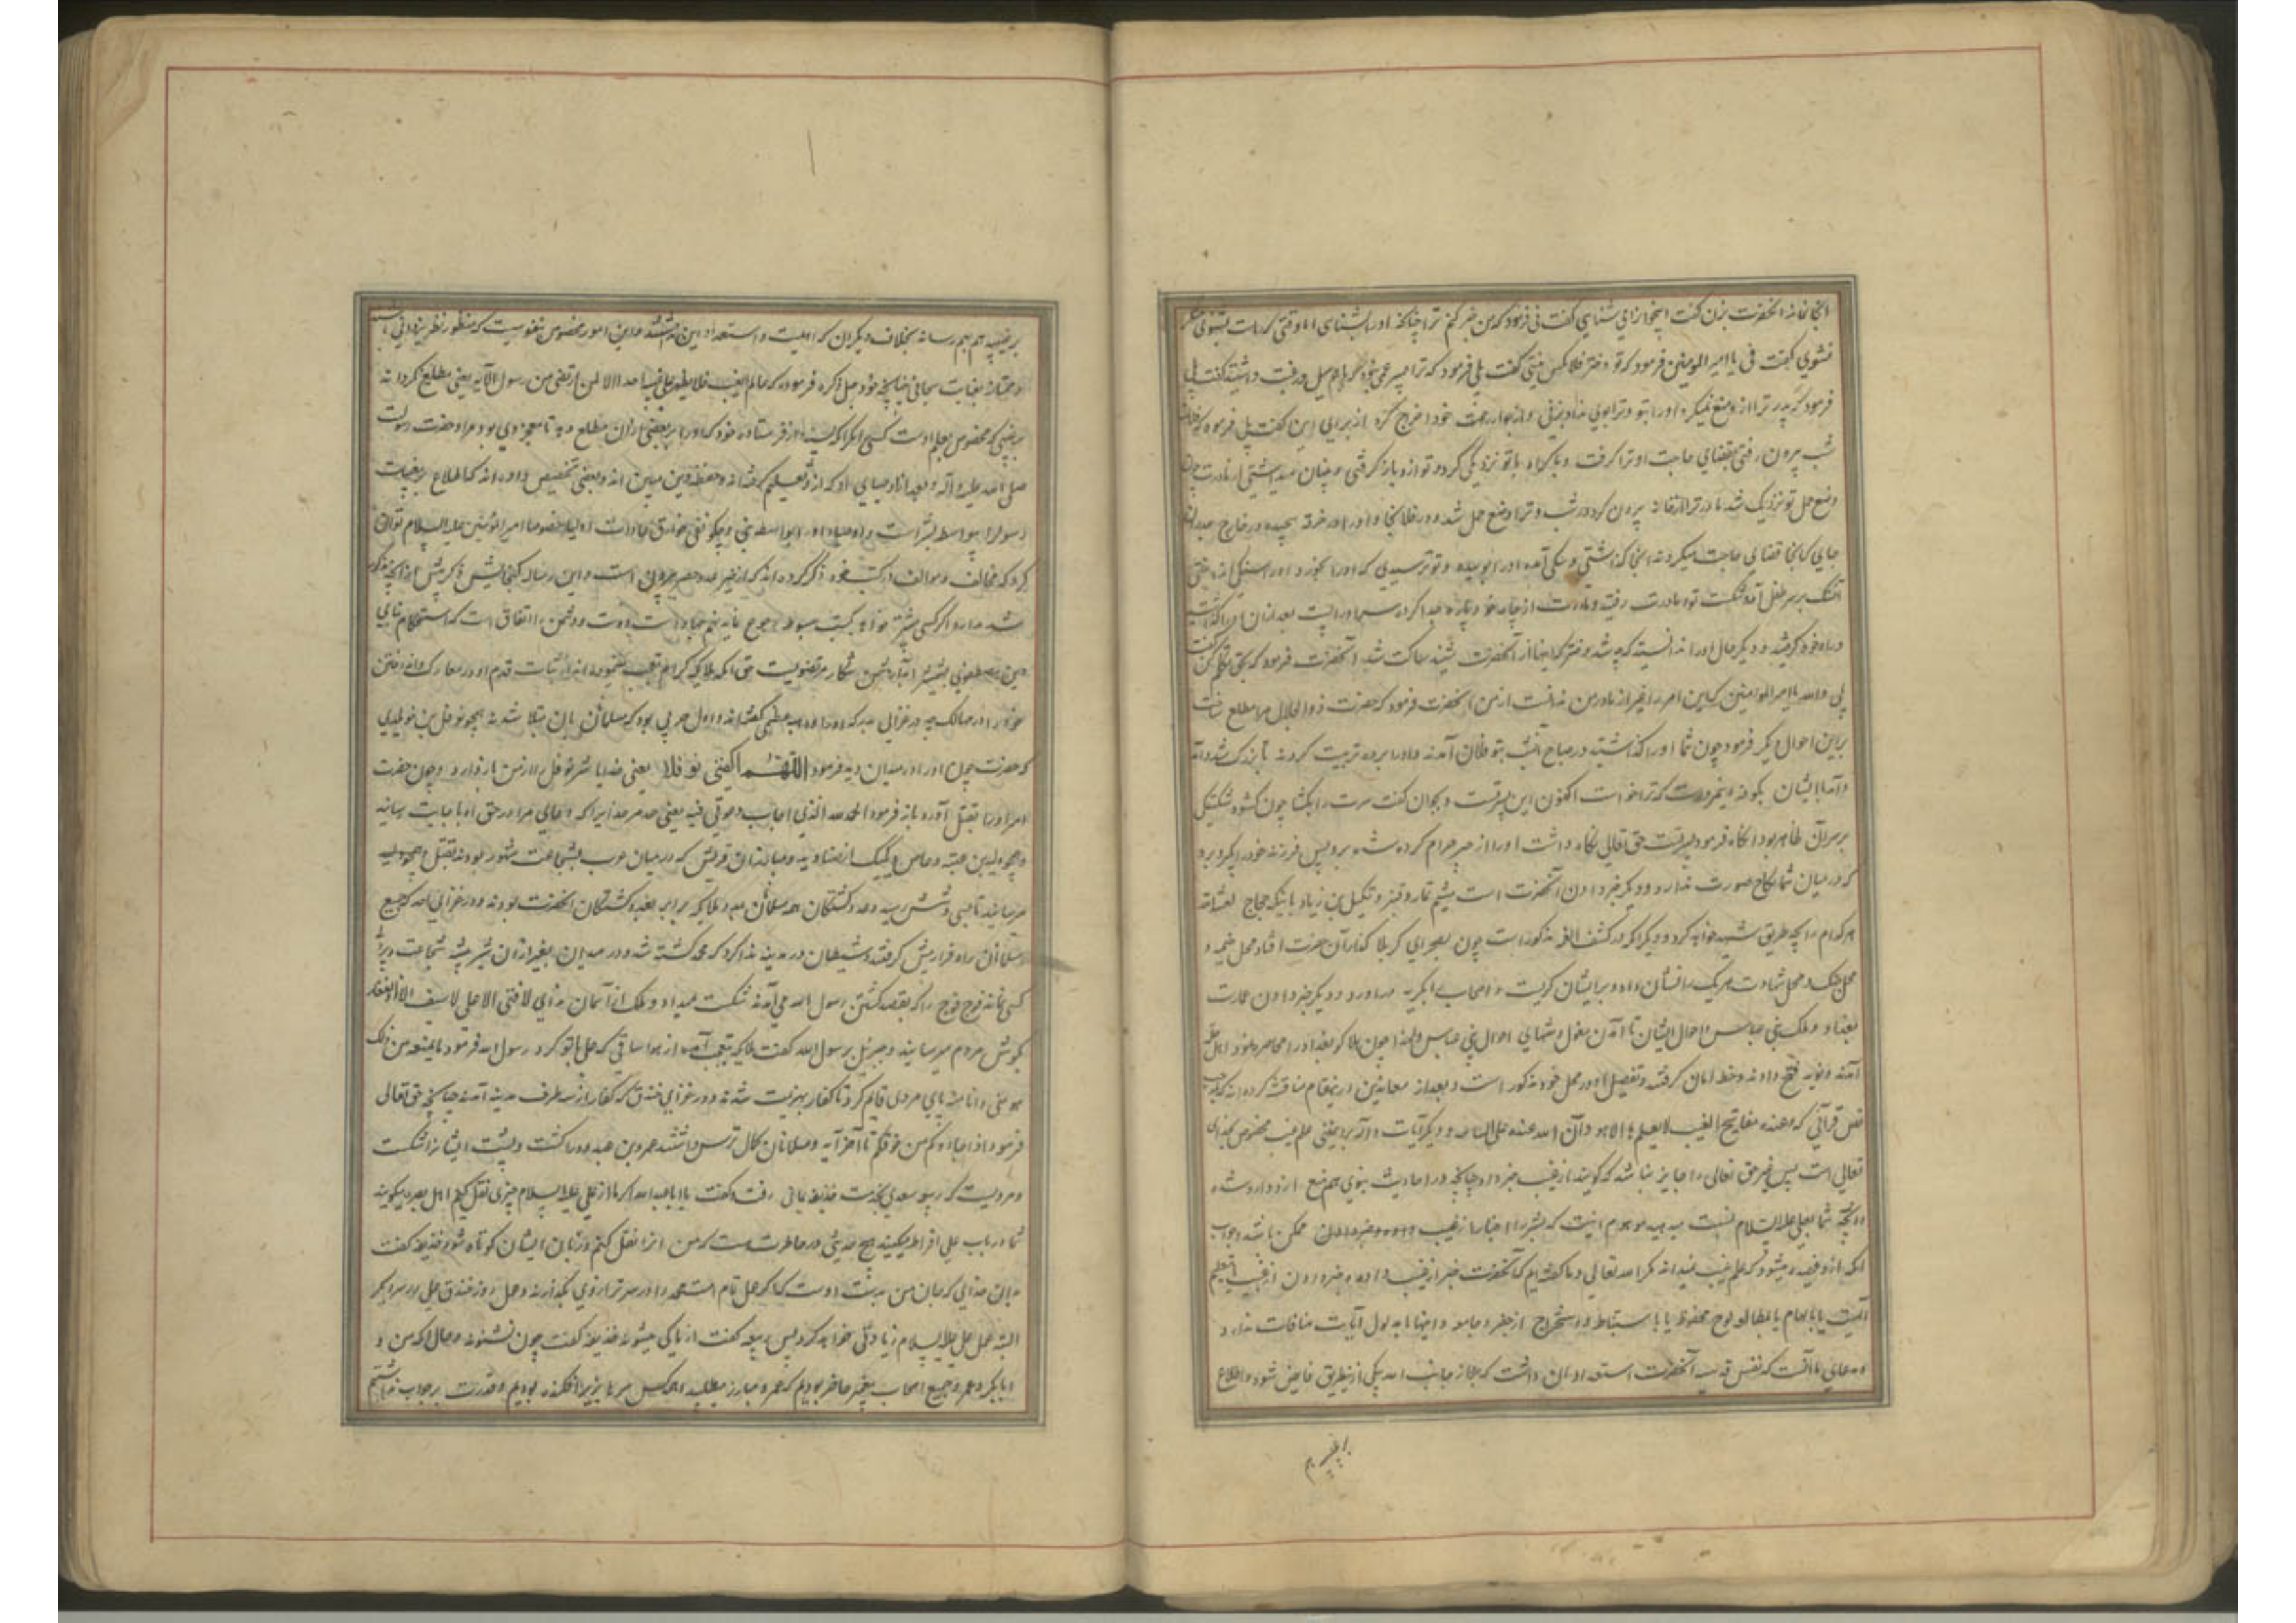 انجا نماند آنحضرت بزن گفت اینجوانرا می شناسی گفت نی فرمود که من خبر کنم ترا چنانکه او را بشناسی اما وقتی که راست بشنوی منکر
نشوی گفت نی یا امیر المومنین فرمود که تو دختر فلانکس نیستی گفت بلی فرمود که ترا پسر عمی نبود که باهم میل و رغبت داشتید گفت بلی
فرمود که پدر ترا از و منع میکرد و او را بتو و ترا بوی نداد بزنی و از جوار خود اخراج کرد از برای این گفت بلی فرمود که فلان
شب بیرون رفتی بقضای حاجت او ترا گرفت و باکراه با تو نزدیکی کرد و تو از و بار گرفتی و پنهان میداشتی از مادرت چون
وضع حمل تو نزدیک شد مادر ترا از خانه بیرون کرد در شب و ترا وضع حمل شد در فلان جا و او را در خرقه پیچیده در خارج جدران
جایی که انجا قضای حاجت میکردند انجا گذاشتی و سگی آمد و او را بوییده و تو ترسیدی که او را بخورد و او را سنگی انداختی
آن سنگ بر سر طفل آمد و شکست تو و مادرت رفتید و مادرت از چادر خود پاره جدا کرده سر او را بست بعد از آن او را گذاشتید
و راه خود گرفتید و دیگر حال او را ندانستید که چه شد دختر که اینها از آنحضرت شنید ساکت شد آنحضرت فرمود که بحق تکلم کن گفت
بلی والله یا امیر المومنین که این امر را بغیر از مادر من ندانست از من آنحضرت فرمود که حضرت ذو الجلال مرا مطلع ساخت
براین احوال دیگر فرمود چون شما او را گذاشتید در صباح آنشب بنو فلان آمدند و او را برده تربیت کردند تا بزرگ شد و آمد
و آمد با ایشان بکوفه و اینمردست که ترا خواست اکنون این پسر تست و بجوان گفت سرت را بگشا چون گشود شکستگی
بر سر آن ظاهر بود انگاه فرمود پسر تست حق تعالی نگاه داشت او را از چیز حرام کرده شده بر و پس فرزند خود را بگیر و برو
که در میان شما نکاح صورت ندارد و دیگر خبر دادن آنحضرت است میثم تمار و قنبر و کمیل بن زیاد باینکه حجاج لعنه الله
هر کدام را بچه طریق شهید خواهد کرد و دیگر آنکه در کشف الغمه مذکور است چون بصحرای کربلا گذار آن حضرت افتاد محل خیمه و
محل جنگ و محل شهادت هر یک را نشان داد و بر ایشان گریست و اصحاب را بگریه در اورد و دیگر خبر دادن عمارت
بغداد و ملک بنی عباس و احوال ایشان تا آمدن مغول و منتهای احوال بنی عباس و لهذا چون هلاکو بغداد را محاصره نمود اهل حله
آمدند و نوید فتح دادند و خط امان گرفتند و تفصیل او در محل خود مذکور است و بعد از معاندین در ینمقام مناقشه کرده اند که بموجب
نص قرآنی که و عنده مفاتیح الغیب لا یعلمها الا هو و ان الله عنده علم الساعه و دیگر آیات وارد برا یغنی علم غیب مخصوص بخدای
تعالی است پس غیر حق تعالی را جایز نباشد که گویند از غیب خبر داد چنانچه در احادیث نبوی هم منع از و وارد شده
و آنچه شما بعلی علیه السلام نسبت میدهید موهم اینست که بشر را اخبار از غیب داده و خبر دادن ممکن باشد و جواب
آنکه از و فهمیده میشود که علم غیب نمیداند مگر خدای تعالی و ما گفته ایم که آنحضرت خبر از غیب داده و خبر دادن از غیب بتعلیم
الهیست یا بالهام یا بمطالعه لوح محفوظ یا باستنباط و استخراج از جفر و جامعه و اینها با مدلول آیات منافات ندارد و
مدعای ما آنست که نفس قدسیه آنحضرت استعداد آن داشت که علم از جانب الله بیکی ازینطریق فایض شود و اطلاع
بر غیب هم بهم رساند بخلاف دیگران که اهلیت و استعداد این نداشتند و این امور مخصوص بنفوسیست که منظور نظر یزدانی باشند
و ممتاز بعنایات سبحانی چنانچه خود جل ذکره فرموده که عالم الغیب فلا یظهر علی غیبه احدا الا لمن ارتضی من رسول الآیه یعنی مطلع نگرداند
بر غیبی که مخصوص بعلم اوست کسی را مگر آنکه پسندد از فرستاده خود که او را بر بعضی از آن مطلع دهد تا معجزه وی بود و مراد حضرت رسولست
صلی الله علیه و آله و بعد از او اوصیای او که از و تعلیم گرفته اند و حفظه دین مبین اند و بعضی تخصیص داده اند که اطلاع بر مغیبات
رسول را بواسطه بشر است و اوصیا را بواسطه نبی و چگونه نفی خوارق عادات اولیا خصوصا امیر المؤمنین علیه السلام توان
کرد که مخالف و موالف در کتب خود ذکر کرده اند که از حیز عد و حصر بیرونی است و این رساله گنجایش ذکر بیش از آنچه مذکور
شد ندارد اگر کسی بیشتر خواهد بکتب مبسوطه رجوع نماید نهم جهاد است دوست و دشمن را اتفاق است که استحکام بنای
دین مصطفوی بشمشیر آبدار دشمن شکار مرتضویست حتی آنکه ملایکه کرام تعجب مینمودند از ثبات قدم او در معارک و انداختن
خود را در مهالک چه در غزای بدر که او را داهیه عظمی گفته اند و اول حربی بود که مسلمانان بان مبتلا شدند همچو نوفل بن خویلدی
که حضرت چون او را در میدان دید فرمود اللهم اکفنی نوفلا یعنی خدایا شر نوفل را از من باز دار و چون حضرت
امیر او را بقتل آورد باز فرمود الحمد لله الذی اجاب دعوتی فیه یعنی حمد مر خدایرا که دعای مرا در حق او باجابت رسانید
و همچو ولید بن عتبه و عاص را یک یک از صنادید و مبارزان قریش که در میان عرب بشجاعت مشهور بودند بقتل
میرسانید تا بسی و شش رسید و عدد کشتگان همه مسلمانان مع ملایکه برابر بعدد کشتگان آنحضرت بودند و در غزای احد که جمیع
مسلمانان راه فرار پیش گرفتند و شیطان در مدینه ندا کرد که محمد کشته شد و در میدان بغیر از آن شیر بیشه شجاعت و
کسی نماند فوج فوج را که بقصد کشتن رسول الله می آمدند شکست میداد و ملک از آسمان ندای لا فتی الا علی لا سیف الا ذو الفقار
بگوش مردم میرسانید و جبرئیل برسول الله گفت ملایکه بتعجب آمدند از مواساتی که علی با تو کرد رسول الله فرمود ما یمنعه من ذلک
هو منی و انا منه پای مردی قایم کرد تا کفار بهزیمت شدند و در غزای خندق که کفار از سه طرف مدینه آمدند چنانچه حق تعالی
فرمود اذ جاؤکم من فوقکم تا آخر آیه و مسلمانان کمال ترس داشتند عمرو بن عبد ود را کشت و پشت ایشان را شکست
و مرویست که ربیعه سعدی بخدمت حذیفه یمانی رفت و گفت یا ابا عبد الله اگر ما از علی علیه السلام چیزی نقل کنیم اهل بصره میگویند
شما در باب علی افراط میکنید هیچ حدیثی در خاطرت هست که من انرا نقل کنم و زبان ایشان کوتاه شود حذیفه گفت
بدان خدایی که جان من بدست اوست که اگر عمل تمام امت محمد را در سر ترازوی بگذارند و عمل روز خندق علی را در سر دیگر
البته عمل علی علیه السلام زیادتی خواهد کرد پس ربیعه گفت از ما کی میشنوند حذیفه گفت چون نشنوند و حال آنکه من و
ابابکر و عمر و جمیع اصحاب پیغمبر حاضر بودیم که عمرو مبارز میطلبید احدی سر بزیر افکنده بودیم و قدرت بر جواب نداشتیم